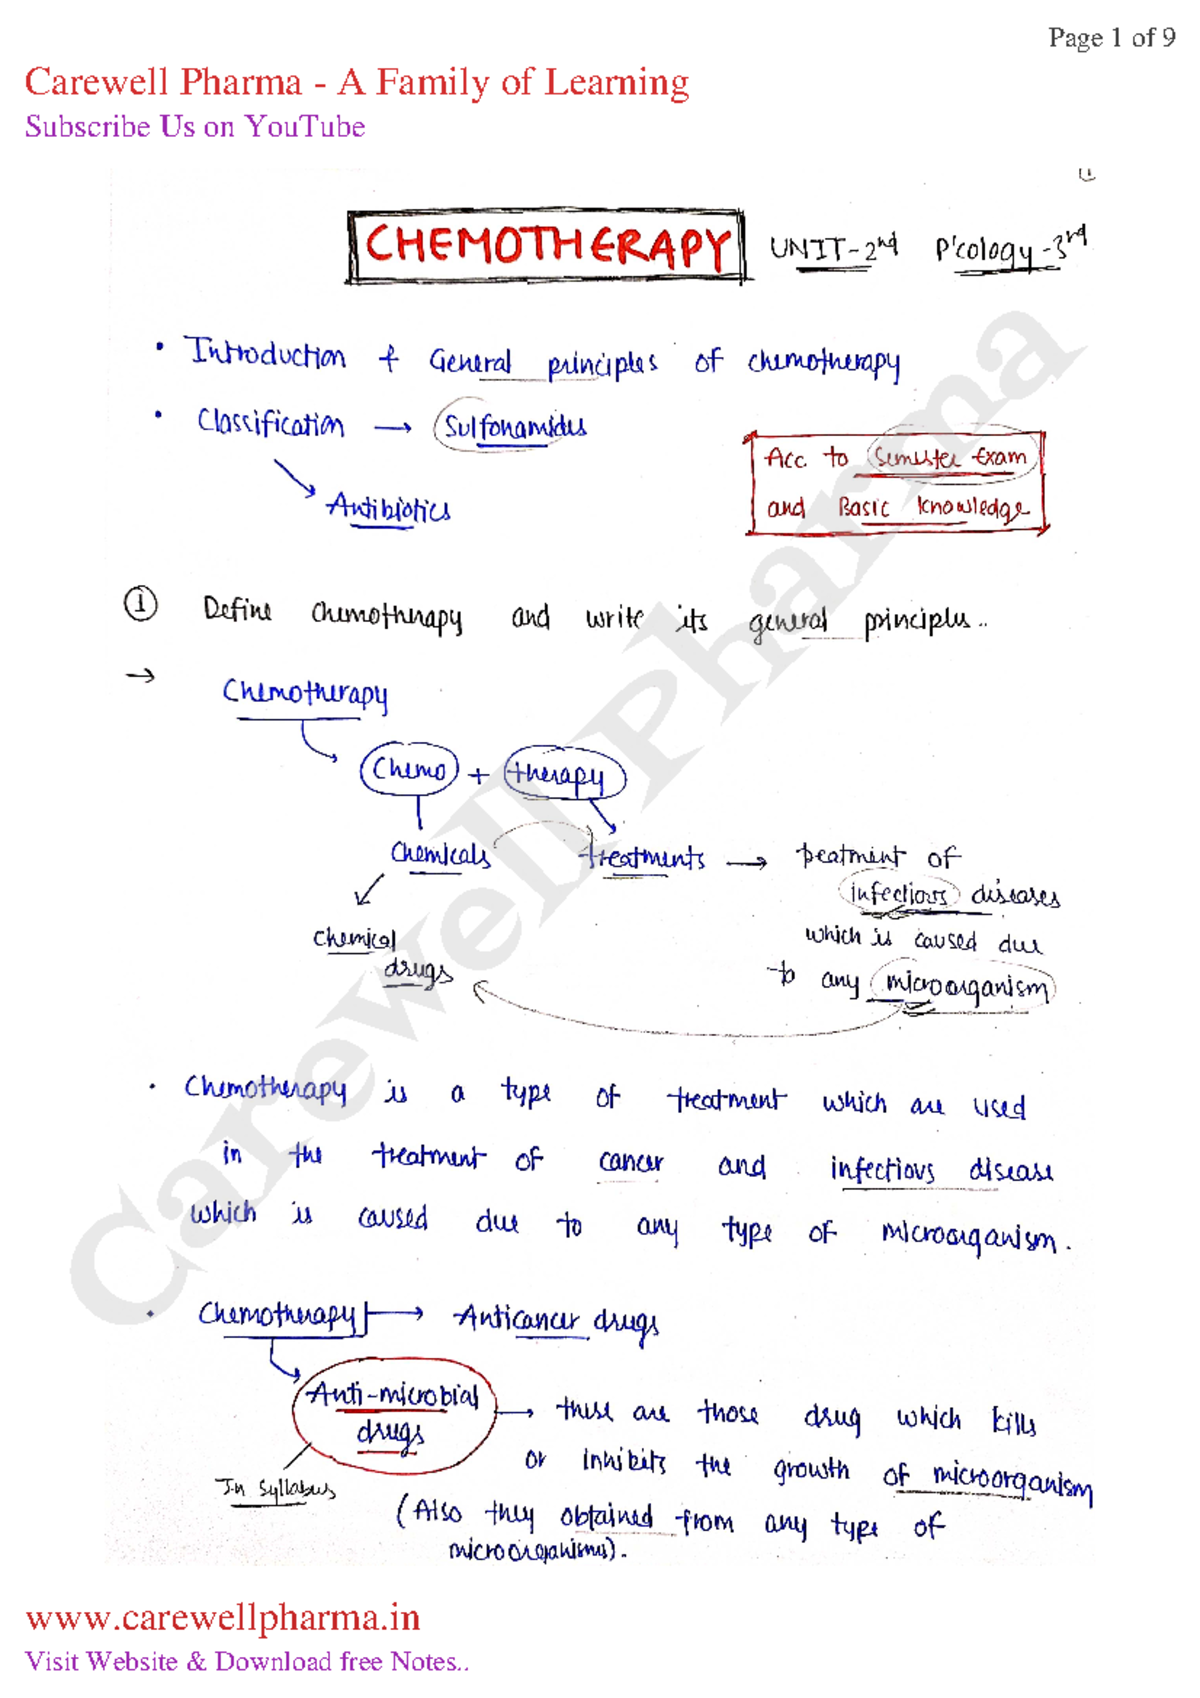 Page 1 of 9
Carewell Pharma - A Family of Learning
Subscribe Us on YouTube
(1)
CHEMOTHERAPY UNIT-2nd P'cology-3rd
• Introduction & General principles of chemotherapy
• Classification → Sulfonamides
Antibiotics
Acc. to Semester Exam
and Basic Knowledge
① Define Chemotherapy and write its general principles..
→ Chemotherapy
Chemo + therapy
Chemicals treatments → treatment of
infectious diseases
which is caused due
to any microorganism
Chemical
drugs
• Chemotherapy is a type of treatment which are used
in the treatment of cancer and infectious disease
which is caused due to any type of microorganism.
• Chemotherapy → Anticancer drugs
Anti-microbial
drugs
→ these are those drug which kills
or inhibits the growth of microorganism
In Syllabus
(Also they obtained from any type of
microorganisms).
Carewell Pharma
www.carewellpharma.in
Visit Website & Download free Notes..